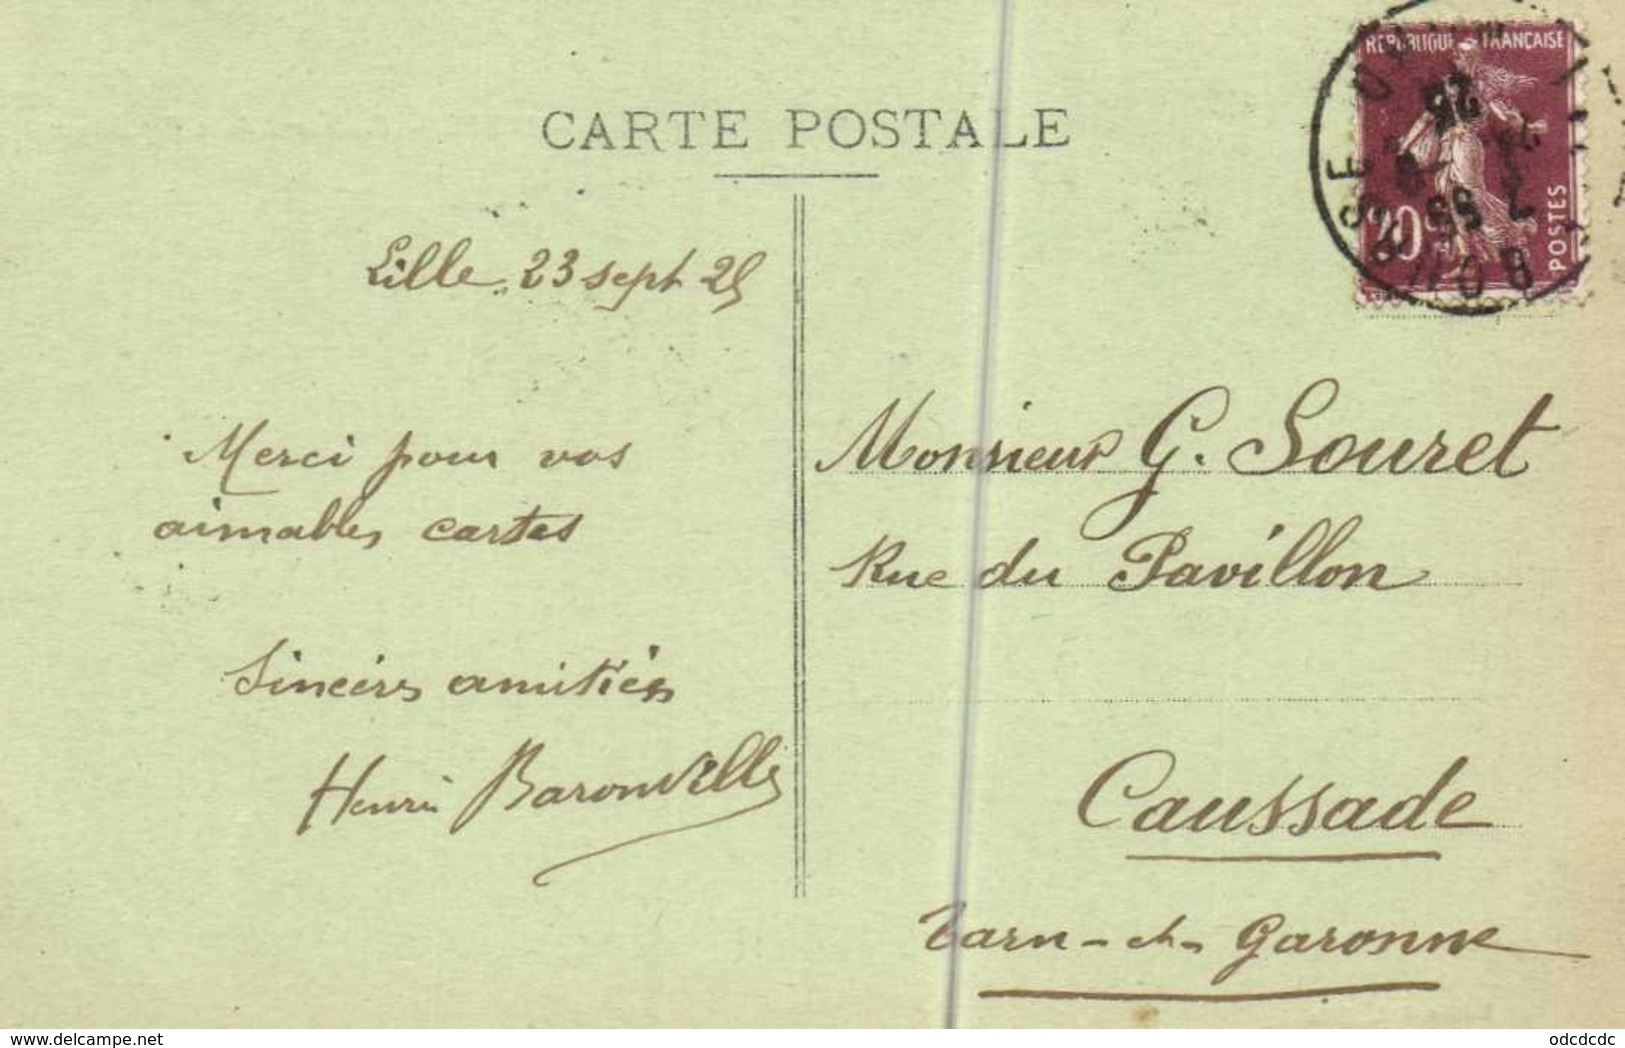 CARTE POSTALE
REPUBLIQUE FRANÇAISE
20c
POSTES
BOURSE
25
Lille, 23 sept 25
Merci pour vos
aimables cartes
Sincères amitiés
Henri Baronville
Monsieur G. Souret
Rue du Pavillon
Caussade
Tarn-et-Garonne
delcampe.net
odcdcdc